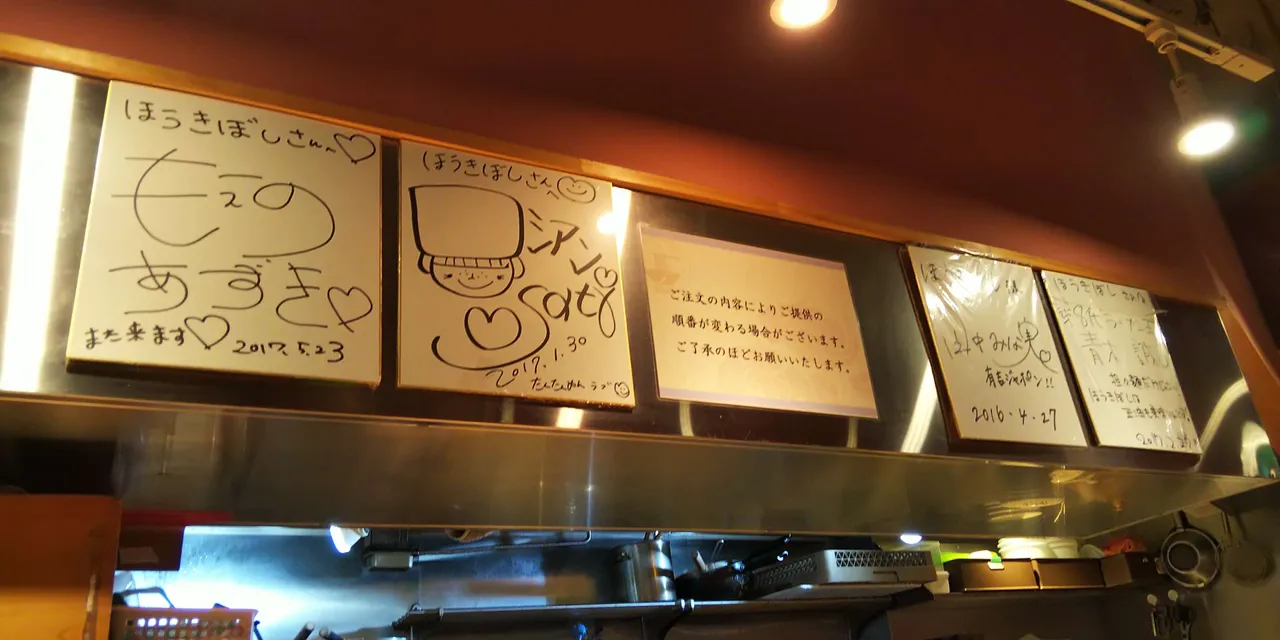 ほうきぼしさんへ♡
もえの
あずき♡
また来ます♡ 2017.5.23
ほうきぼしさんへ
シアン
Sati
2017.1.30
たんたんめん ラブ
ご注文の内容によりご提供の
順番が変わる場合がございます。
ご了承のほどお願いいたします。
有吉ジャポン!!
2016・4・27
ほうきぼし さんへ
ほうきぼしは